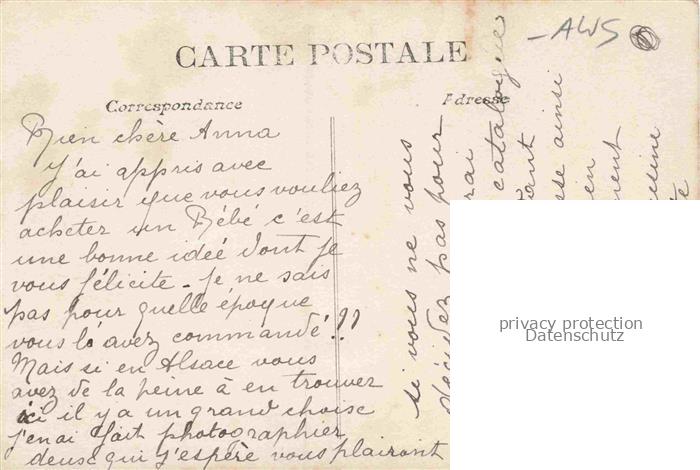 -AWS
CARTE POSTALE
Correspondance
Adresse
Bien chére Anna
J'ai appris avec
plaisir que vous vouliez
acheter un Bébé c'est
une bonne idée dont je
vous félicite - Je ne sais
pas pour quelle époque
vous l'avez commandé!!
Mais si en Alsace vous
avez de la peine à en trouver
ici il y a un grand choise
j'en ai fait photographier
deux qui j'espère vous plairont
si vous ne vous
décidez pas pour
rai
catalogue
ant
se ainsi
en
ment
usine
privacy protection
Datenschutz